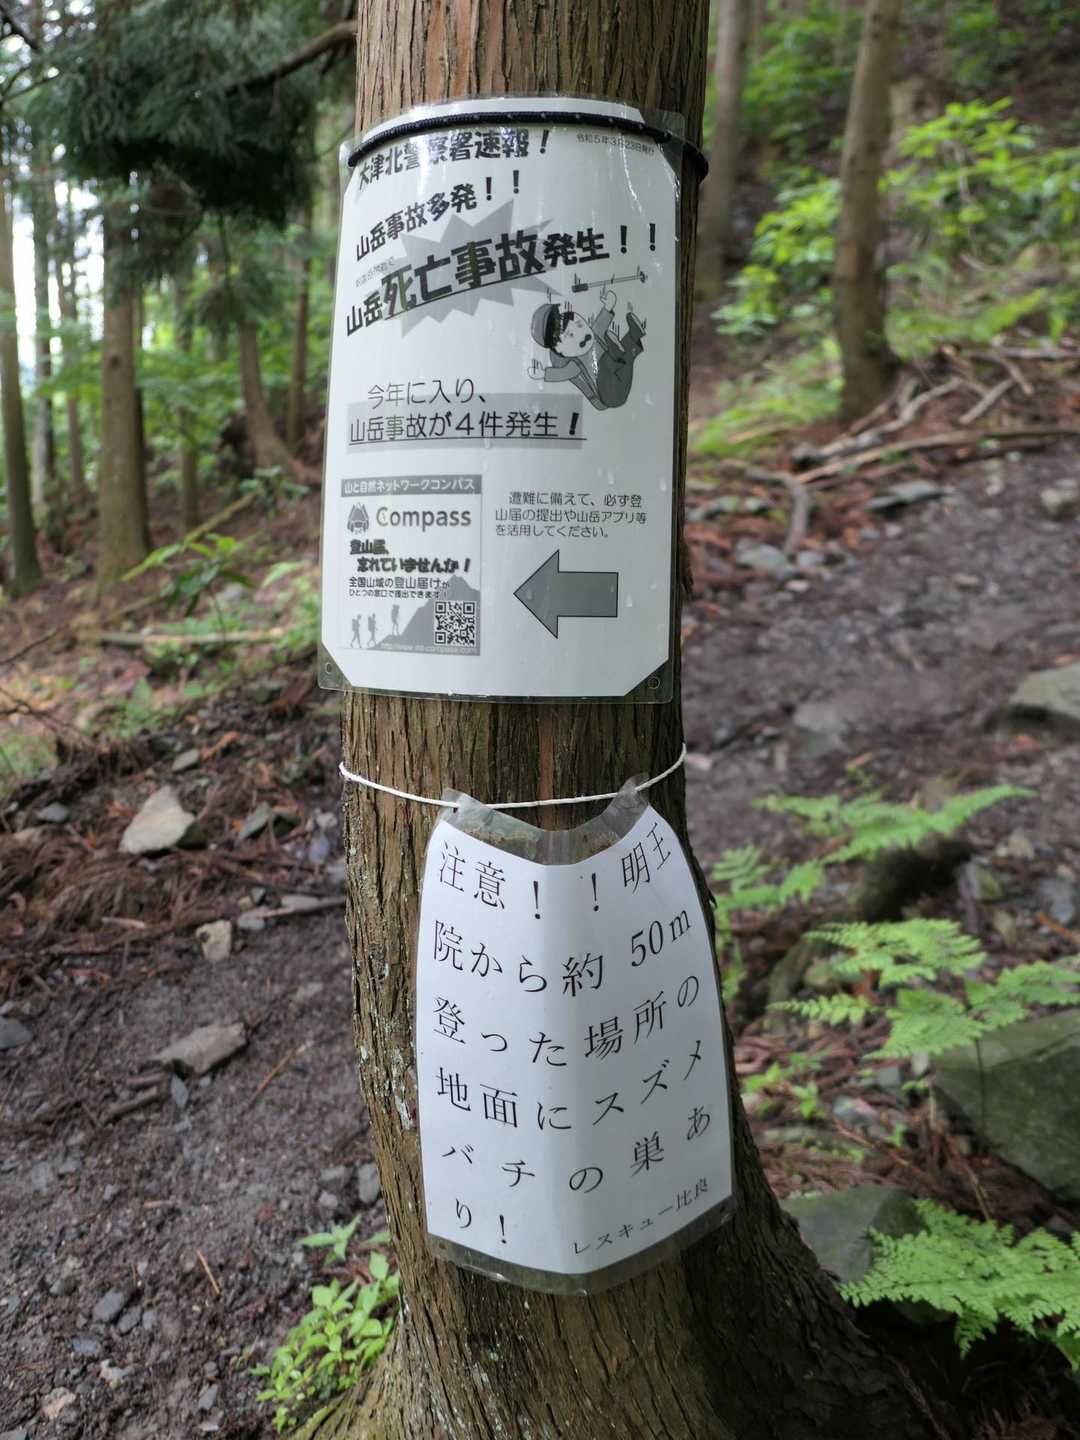 大津北警察署速報！
令和5年3月23日発行
山岳事故多発！！
山岳死亡事故発生！！
今年に入り、
山岳事故が４件発生！
山と自然ネットワークコンパス
Compass
登山届、
忘れていませんか！
全国山域の登山届けが
ひとつの窓口で提出できます！
遭難に備えて、必ず登
山届の提出や山岳アプリ等
を活用してください。
注意！！明王
院から約50m
登った場所の
地面にスズメ
バチの巣あ
り！
レスキュー比良